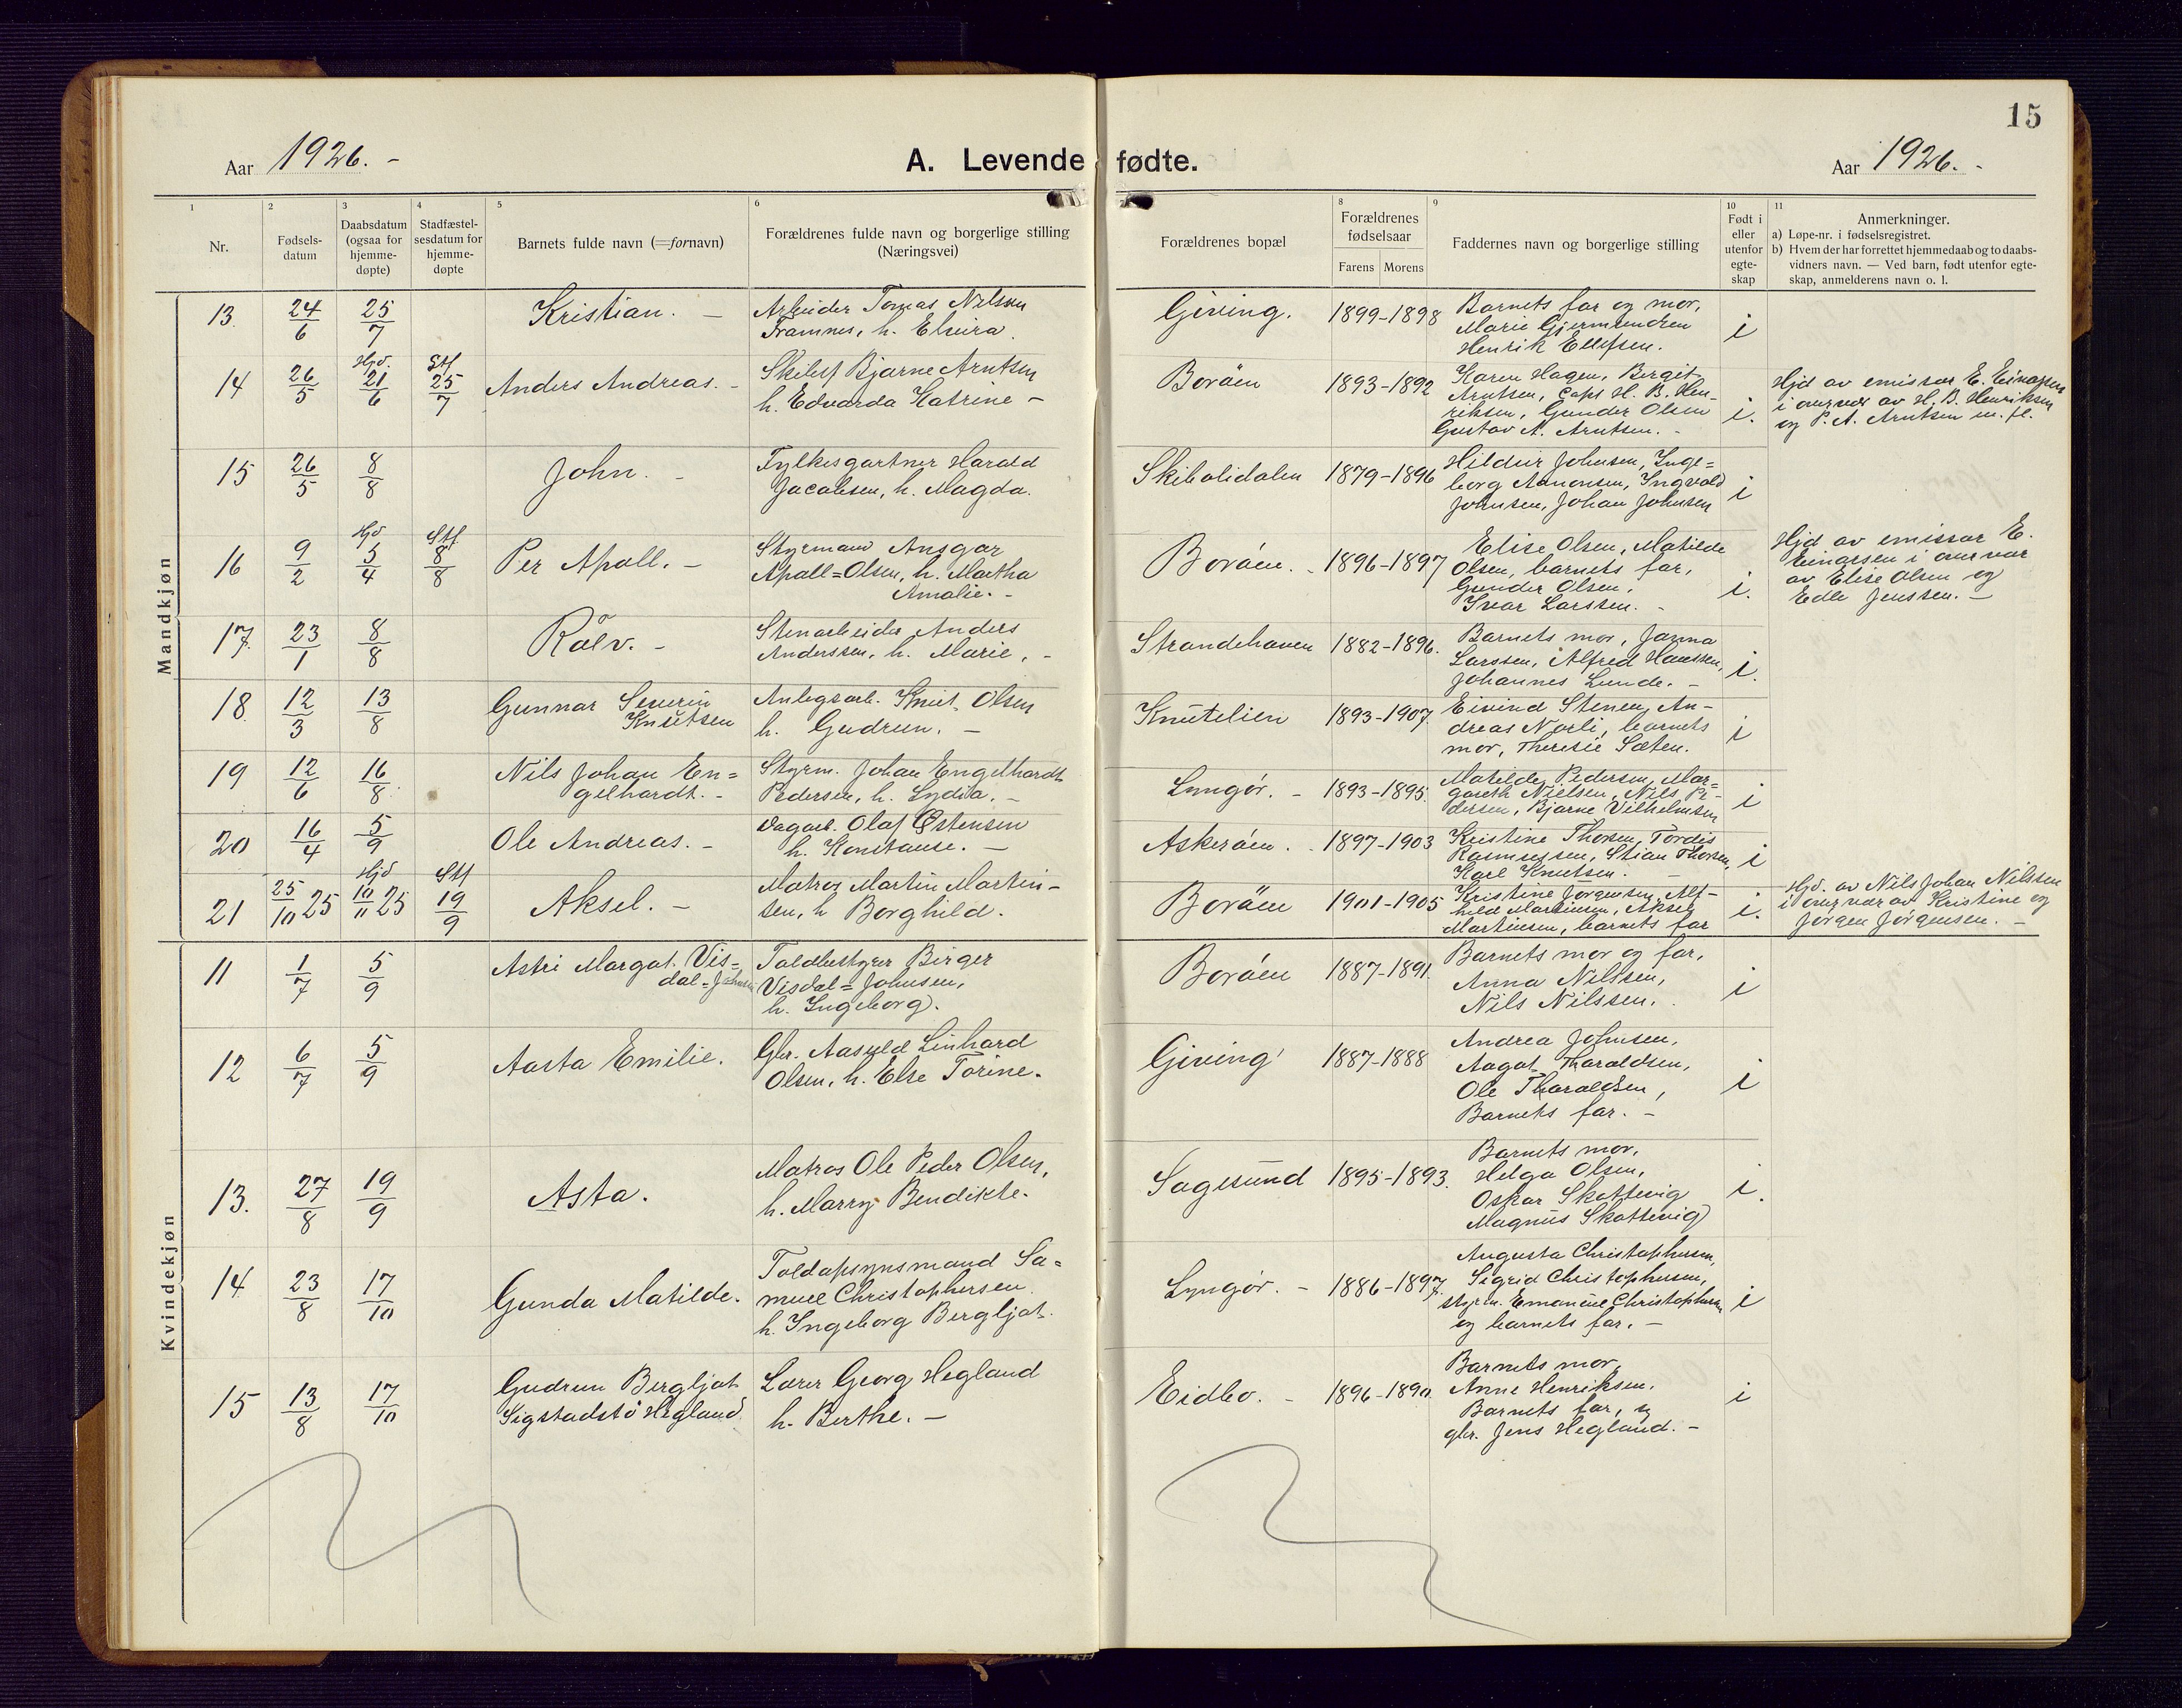 15
Aar 1926. -
A. Levende fødte.
Aar 1926. -
1
Nr.
2
Fødsels-
datum
3
Daabsdatum
(ogsaa for
hjemme-
døpte)
4
Stadfæstel-
sesdatum for
hjemme-
døpte
5
Barnets fulde navn (=fornavn)
6
Forældrenes fulde navn og borgerlige stilling
(Næringsvei)
Forældrenes bopæl
8
Forældrenes
fødselsaar
Farens Morens
9
Faddernes navn og borgerlige stilling
10
Født i
eller
utenfor
egte-
skap
11
Anmerkninger.
a) Løpe-nr. i fødselsregistret.
b) Hvem der har forrettet hjemmedaab og to daabs-
vidners navn. — Ved barn, født utenfor egte-
skap, anmelderens navn o. l.
Mandkjøn
13. 24/6 25/7 Kristian. -
Arbeider Tomas Nilsen
Tramnes, h. Elvira.
Giving. 1899-1898
Barnets far og mor,
Marie Gjermundsen
Henrik Ellefsen.
i
14 26/5 Hjd. 21/6 Stf 25/7 Anders Andreas. -
Skibsf Bjarne Arntsen
h. Edvarda Katrine -
Borøen 1893-1892
Karen Hagen, Bergit
Arntsen, Capt H. B. Hen-
riksen, Gunder Olsen
Gustav A. Arntsen. -
i.
Hjd av emissær E. Einarsen
i overvær av H. B. Henriksen
og P. A. Arntsen m. fl.
15 26/5 8/8 John. -
Fylkesgartner Harald
Jacobsen, h. Magda.
Skibolidalen 1879-1896
Hildur Johnsen, Inge=
borg Aanonsen, Ingvald
Johnsen, Johan Johnsen
i
16 9/2 Hjd 5/4 Stf. 8/8 Per Apall. -
Styrmand Ansgar
Apall=Olsen, h. Martha
Amalie. -
Borøen. - 1896-1897
Elise Olsen, Matilde
Olsen, barnets far,
Gunder Olsen,
Ivar Larssen. -
i.
Hjd av emissær E.
Einarsen i overvær
av Elise Olsen og
Edle Jenssen. -
17. 23/1 8/8 Rolv. -
Stenarbeider Anders
Anderssen, h. Marie. -
Strandehaven 1882-1896.
Barnets mor, Janna
Larssen, Alfred Hanssen,
Johannes Lunde. -
i.
18. 12/3 13/8 Gunnar Severin
Knutsen
Anlegsarb. Knut Olsen
h. Gudrun. -
Knutelien 1893-1907.
Eivind Stenen, An-
dreas Norli, barnets
mor, Theresie Sæten.
i
19 12/6 16/8 Nils Johan En=
gelhardt. -
Styrm. Johan Engelhardt
Pedersen, h. Lydia. -
Lyngør. - 1893-1895.
Matilde Pedersen, Mar=
gareth Nielsen, Nils Pe-
dersen, Bjarne Vilhelmsen
i
20 16/4 5/9 Ole Andreas. -
Vegarb. Olaf Østensen
h. Konstanse. -
Askerøen. - 1897-1903
Kristine Thorsen, Tordis
Rasmussen, Stian Thorsen,
Karl Knutsen. -
i
21 25/10 25 Hjd 10/11 25 Stf 19/9 Aksel. -
Matros Martin Martin-
sen, h Borghild.
Borøen 1901-1905
Kristine Jørgensen, Alf-
hild Martinsen, Aksel
Martinsen, barnets far
i.
Hjd. av Nils Johan Nilssen
i overvær av Kristine og
Jørgen Jørgensen. -
Kvindekjøn
11 1/7 5/9 Astri Margot Vis=
dal=Johnsen
Toldbestyrer Birger
Visdal=Johnsen,
h. Ingeborg.
Borøen 1887-1891.
Barnets mor og far,
Anna Nilssen,
Nils Nilssen.
i
12 6/7 5/9 Aasta Emilie.
Gbr. Aasvald Linhard
Olsen, h. Else Torine.
Giving 1887-1888
Andrea Johnsen,
Aagot Tharaldsen,
Ole Tharaldsen,
Barnets far. -
i
13. 27/8 19/9 Asta.
Matros Ole Peder Olsen,
h. Marry Bendikte.
Sagesund 1895-1893.
Barnets mor,
Helga Olsen,
Oskar Skottevig
Magnus Skottevig
i.
14 23/8 17/10 Gunda Matilde.
Toldopsynsmand Sa=
muel Christophersen
h. Ingeborg Bergljot.
Lyngør. - 1886-1897.
Augusta Christophersen,
Sigrid Christophersen,
styrm. Emanuel Christophersen
og barnets far. -
i
15 13/8 17/10 Gudrun Bergljot
Sigstadstø Hegland.
Lærer Georg Hegland
h. Berthe. -
Eidbo. - 1896-1890.
Barnets mor,
Anne Henriksen.
Barnets far, og
gbr. Jens Hegland. -
i